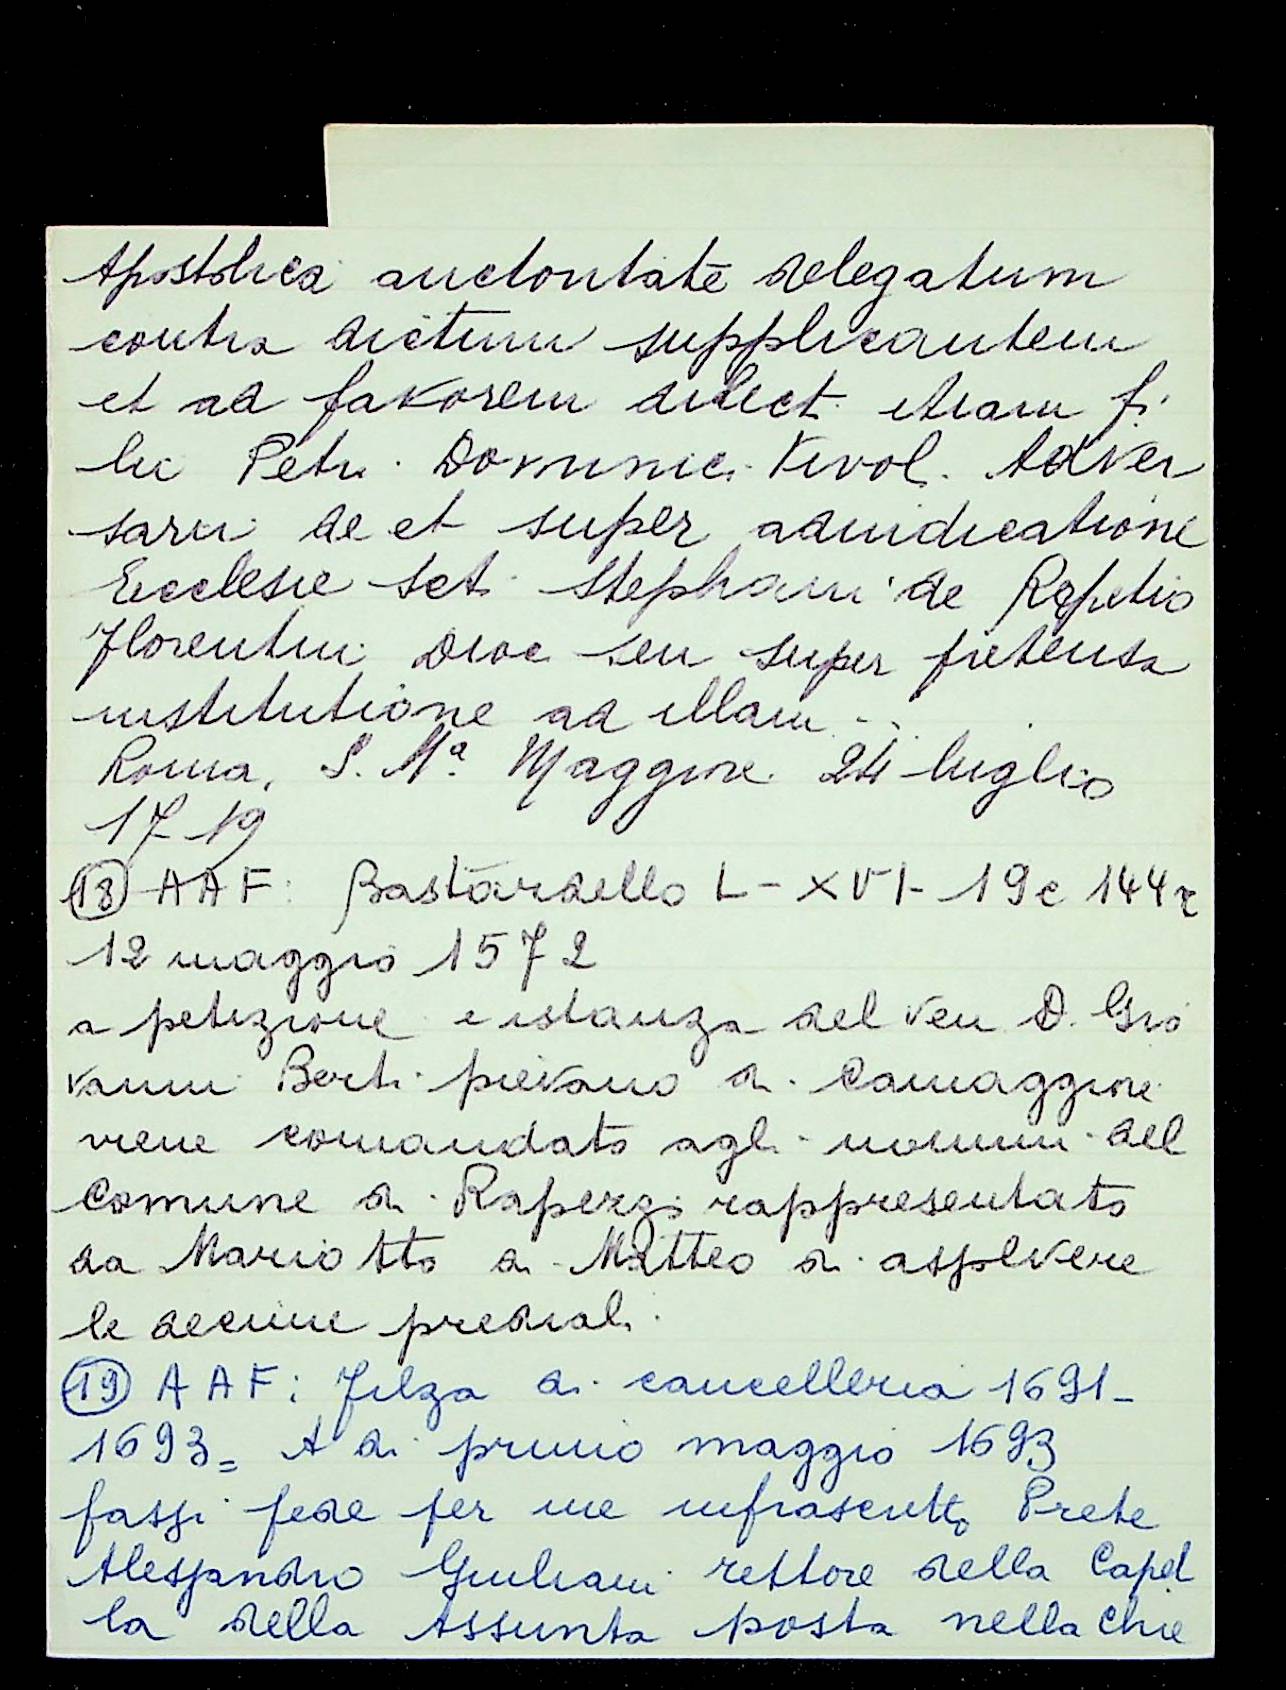 Apostolica auctoritate delegatum
contra dictum supplicantem
et ad favorem dilect. etiam fi
lii Petri Dominici Tivol. Adver
sarii de et super adiudicatione
Ecclesie Sct. Stephani de Rapetio
Florentin. Dioc. seu super pretensa
institutione ad illam...
Roma, S. Mª Maggiore 24 luglio
1719
(18) AAF: Bastardello L-XVI-19 c 144r
12 maggio 1572
a petizione e istanza del ven D. Gio
vanni Berti pievano di Camaggiore
viene comandato agli uomini del
Comune di Rapezzi rappresentato
da Mariotto di Matteo di assolvere
le decime prediali.
(19) AAF: Filza di cancelleria 1691-
1693= A di primo maggio 1693
fassi fede per me infrascritto Prete
Alessandro Giuliani rettore della Capel
la della Assunta posta nella Chie